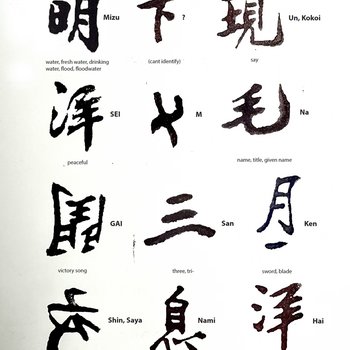 明 Mizu 下 ? 現 Un, Kokoi
water, fresh water, drinking water, flood, floodwater
(cant identify)
say
洋 SEI M 毛 Na
peaceful
name, title, given name
GAI 三 San 月 Ken
victory song
three, tri-
sword, blade
Shin, Saya 息 Nami 洋 Hai